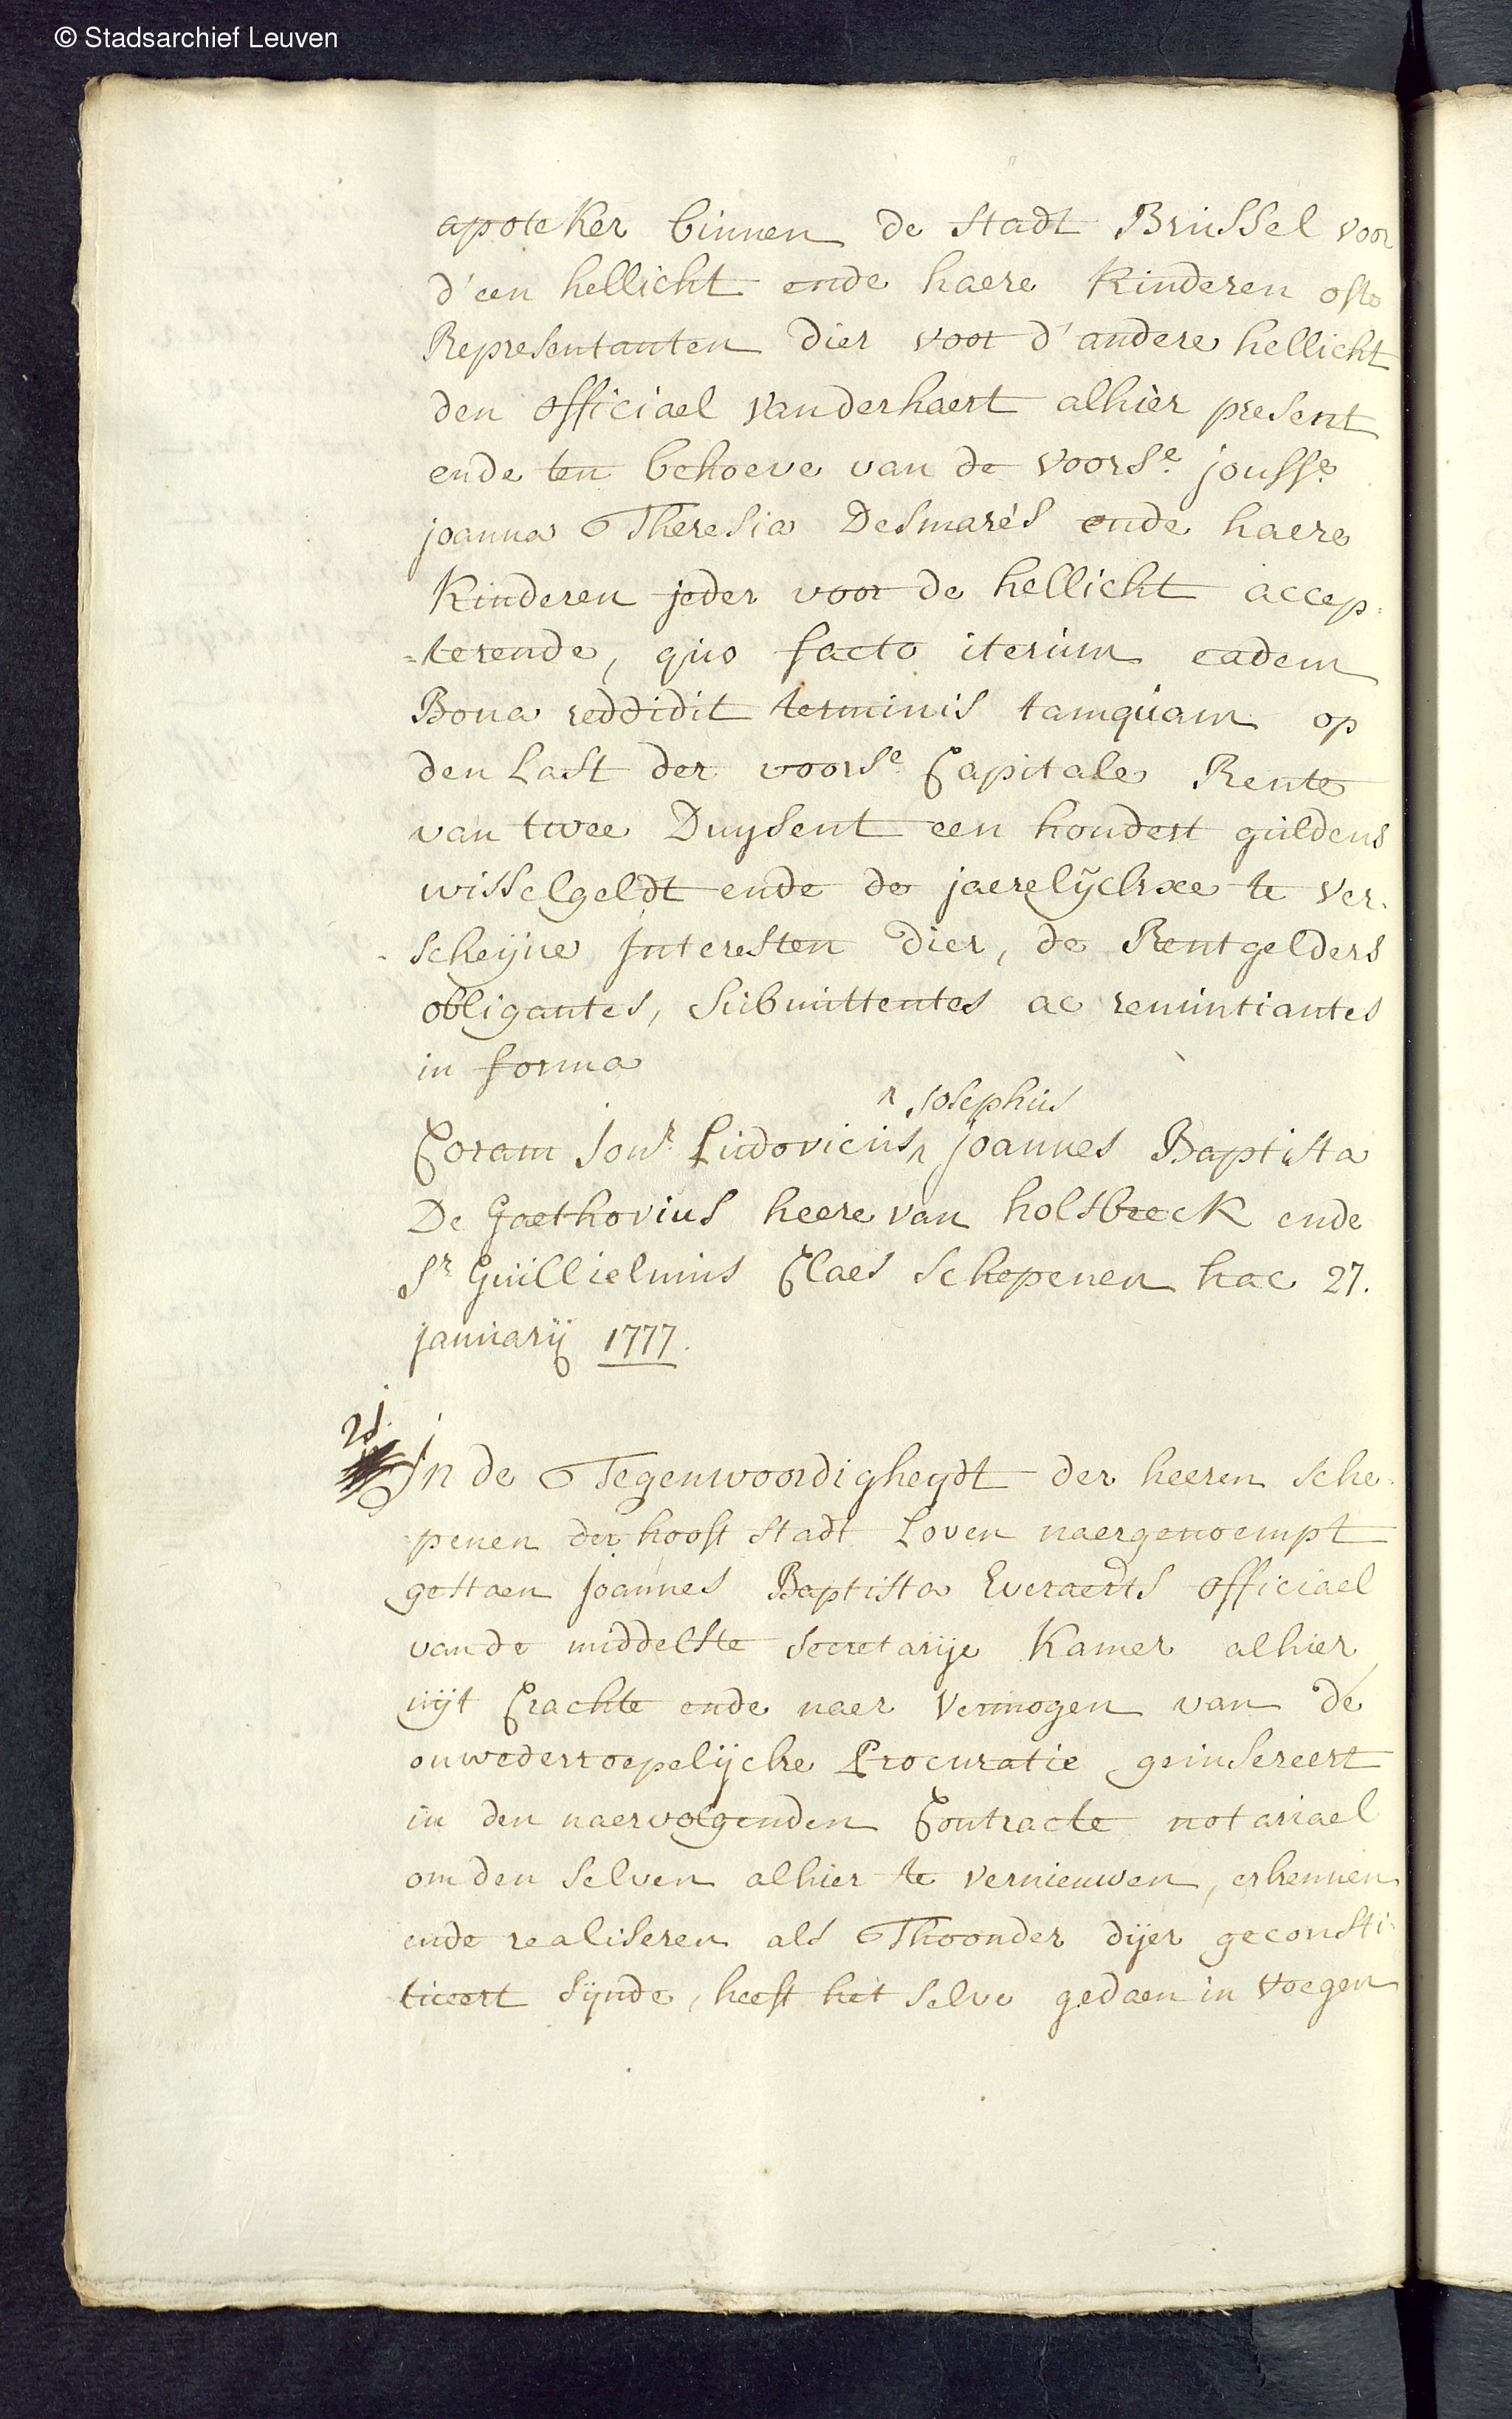 © Stadsarchief Leuven
apoteker binnen de stadt Brussel voor
d'een hellicht ende haere Kinderen ofte
Representanten dier voor d'andere hellicht
den officiael vanderhaert alhier present
ende ten behoeve van de voorse. jouffe.
joanna Theresia Desmarés ende haere
Kinderen jeder voor de hellicht accep=
=terende, quo facto iterum eadem
Bona reddidit terminis tamquam op
den Last der voorse. Capitale Rente
van twee Duysent een hondert guldens
wisselgeldt ende de jaerelijckxe te ver-
scheyne Interesten dier, de Rentgelders
obligantes, submittentes ac renuntiantes
in forma
^ Josephus
Coram Jonr. Ludovicus ^ joannes Baptista
De Gaethovius heere van holsbeeck ende
Sr Guillielmus Claes schepenen hac 27.
january 1777.
21.
In de Tegenwoordigheydt der heeren sche-
penen der hooft stadt Loven naergenoempt
gestaen Joannes Baptista Everaerts officiael
vande middelste secretarije Kamer alhier
uyt Crachte ende naer vermogen van de
onwederroepelijcke Procuratie geinsereert
in den naervolgenden Contracte notariael
om den selven alhier te vernieuwen, erkennen
ende realiseren als Thoonder dijer geconsti-
tueert sijnde, heeft het selve gedaen in voegen